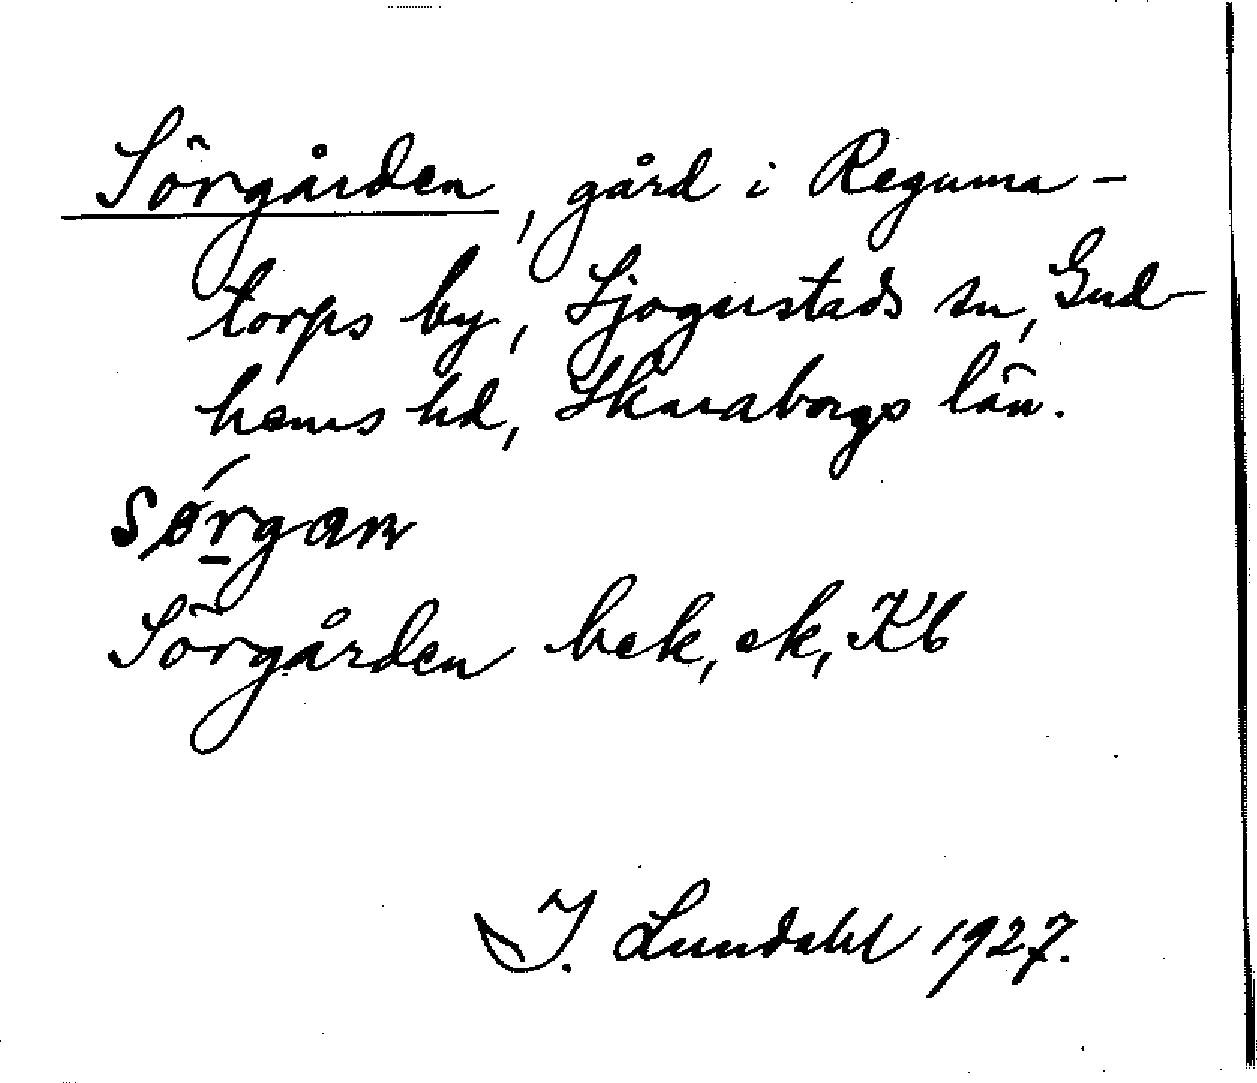 Sörgården, gård i Reguma-
torps by, Sjogerstads sn, Gud-
hems hd, Skaraborgs län.
Sørgan
Sörgården bek, ek, Kb
I. Lundahl 1927.